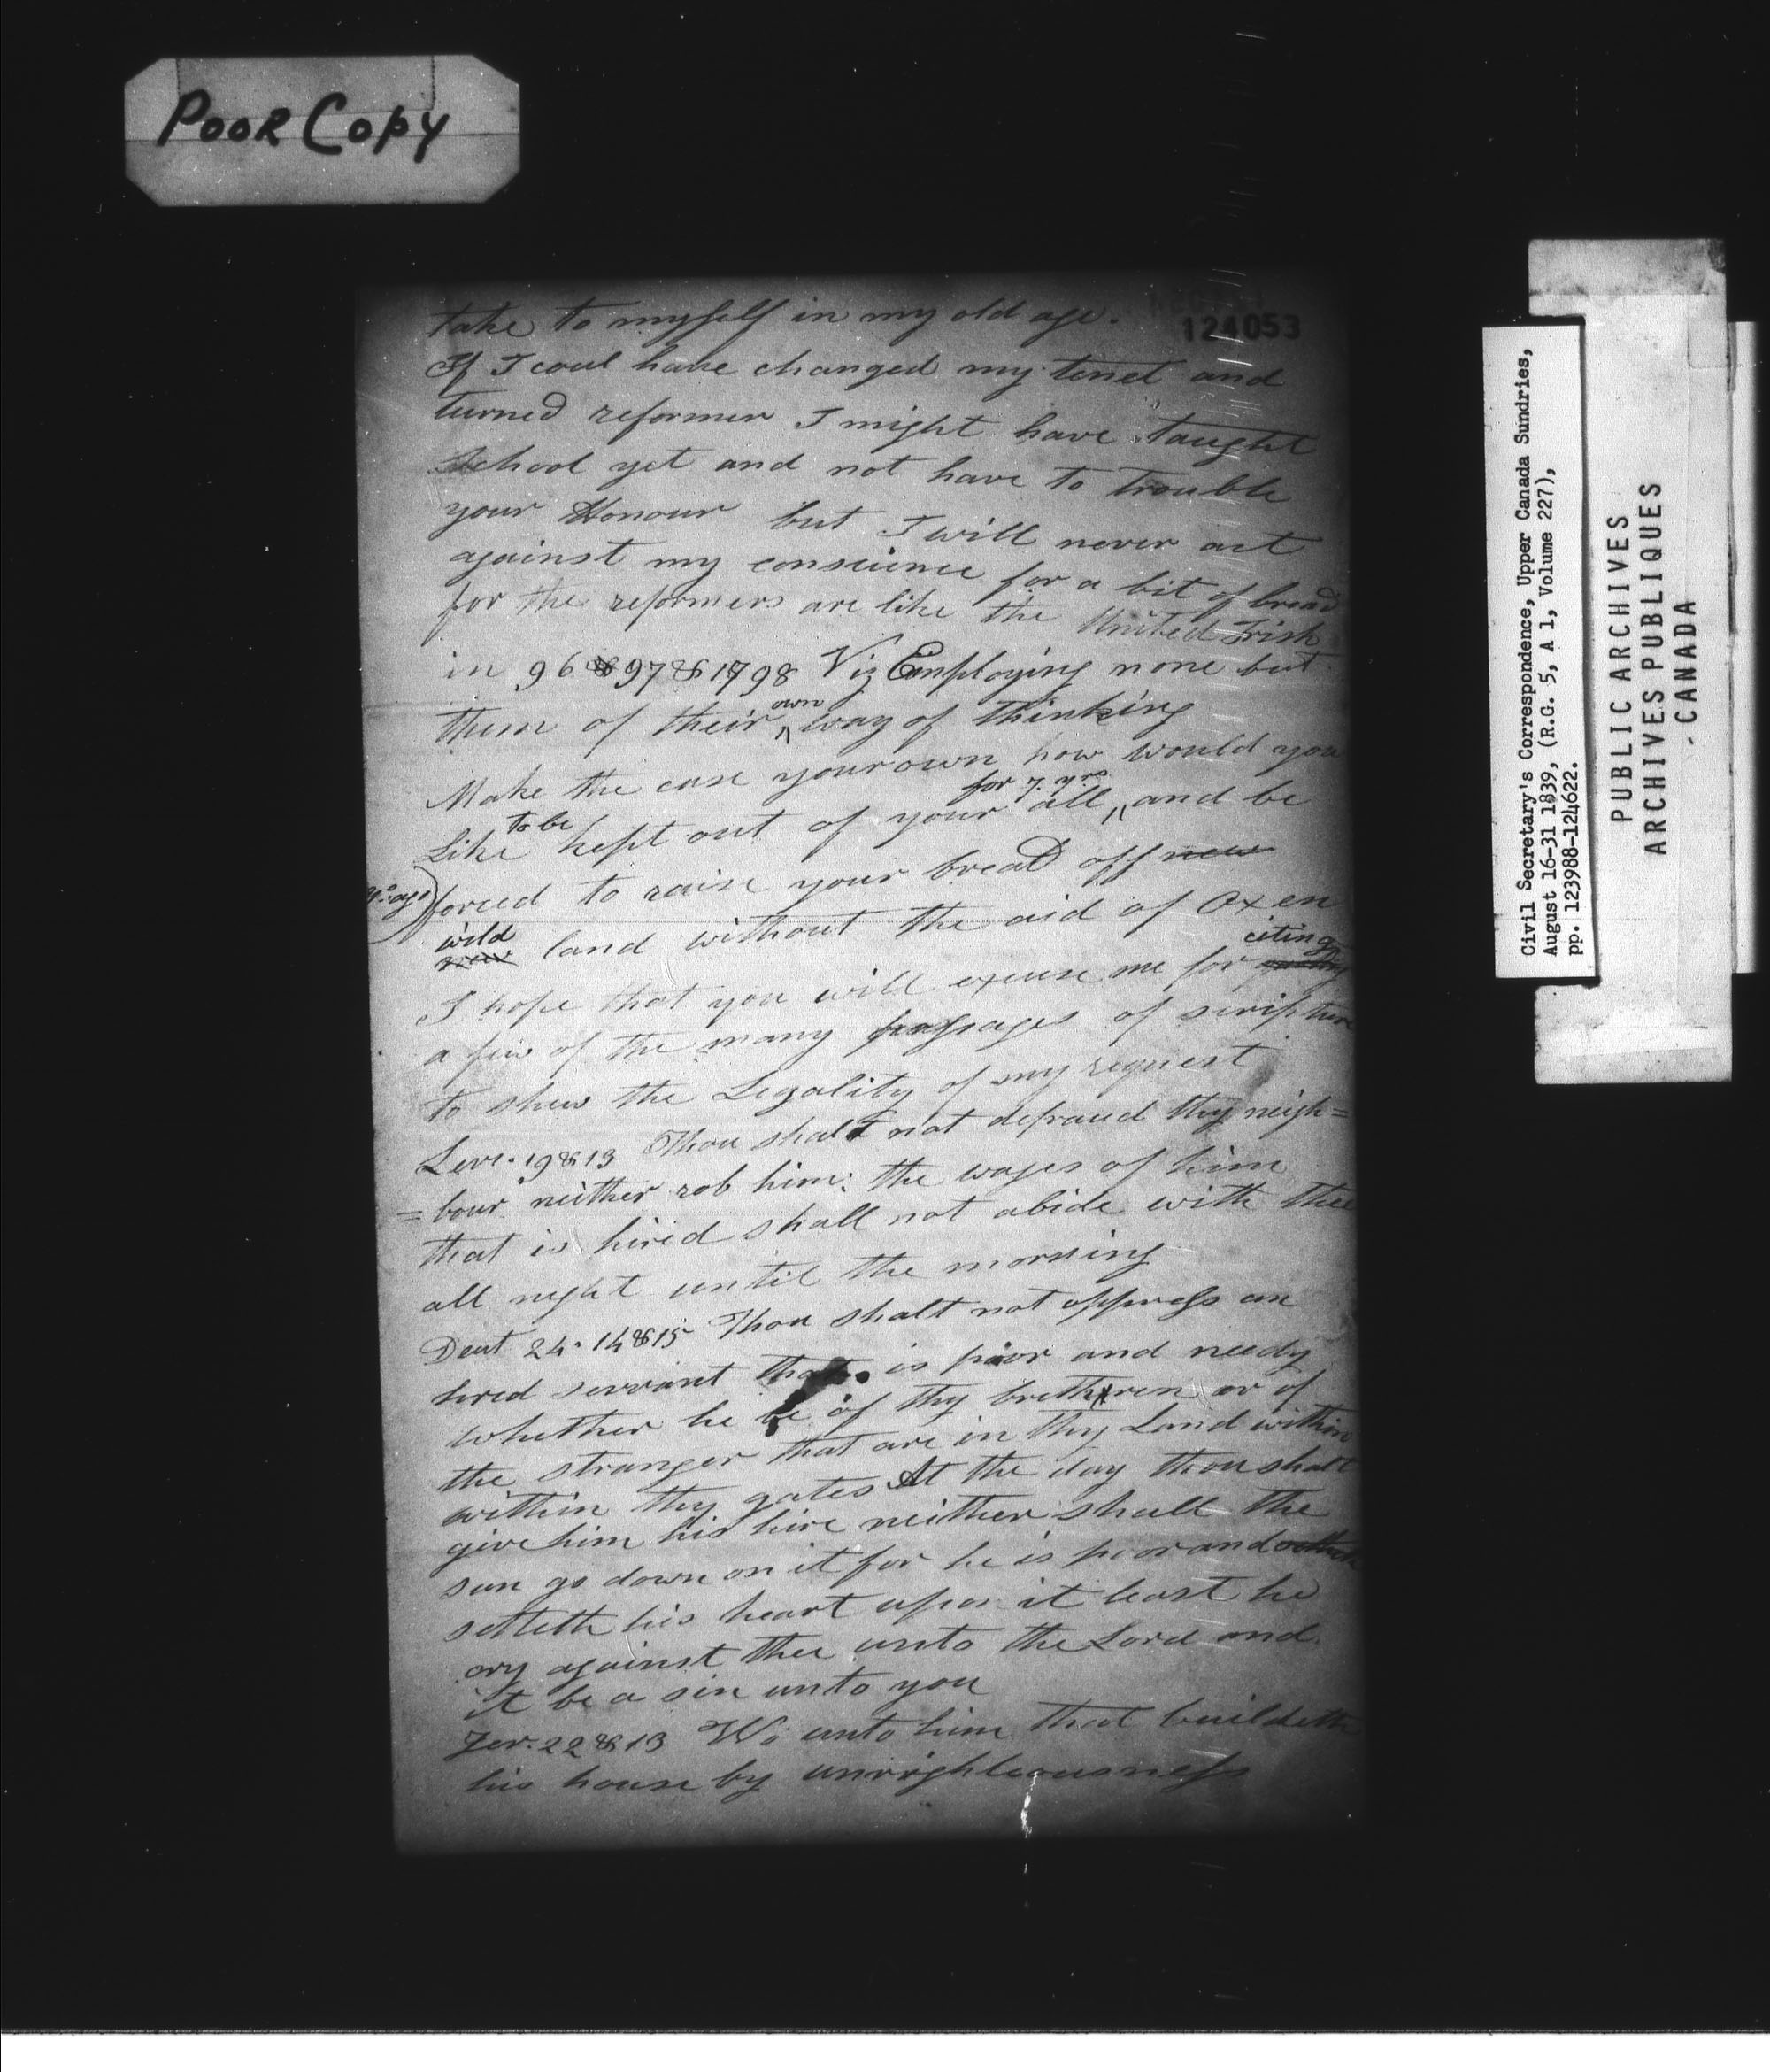 Poor Copy
124053
take to myself in my old age.
If I coul have changed my tenet and
turned reformer I might have taught
School yet and not have to trouble
your Honour but I will never act
against my conscience for a bit of bread
for the reformers are like the United Irish
in 96 & 97 & 1798 Viz Employing none but
them of their own way of thinking
Make the case your own how would you
Like to be kept out of your all for 7 yrs and be
forced to raise your bread off new
wild new land without the aid of Oxen
I hope that you will excuse me for citing
a few of the many passages of scripture
to shew the Legality of my request
Levi. 19 & 13 Thou shalt not defraud thy neigh=
=bour neither rob him: the wages of him
that is hired shall not abide with thee
all night until the morning
Deut 24. 14 & 15 Thou shalt not oppress an
hired servant that is poor and needy
whether he be of thy brethren or of
the stranger that are in thy Land within
within thy gates At the day thou shalt
give him his hire neither shall the
sun go down on it for he is poor and
setteth his heart upon it least he
cry against thee unto the Lord and
it be a sin unto you
Jer. 22 & 13 Wo unto him that buildeth
his house by unrighteousness
Civil Secretary's Correspondence, Upper Canada Sundries,
August 16-31 1839, (R.G. 5, A 1, Volume 227),
pp. 123988-124622.
PUBLIC ARCHIVES
ARCHIVES PUBLIQUES
CANADA